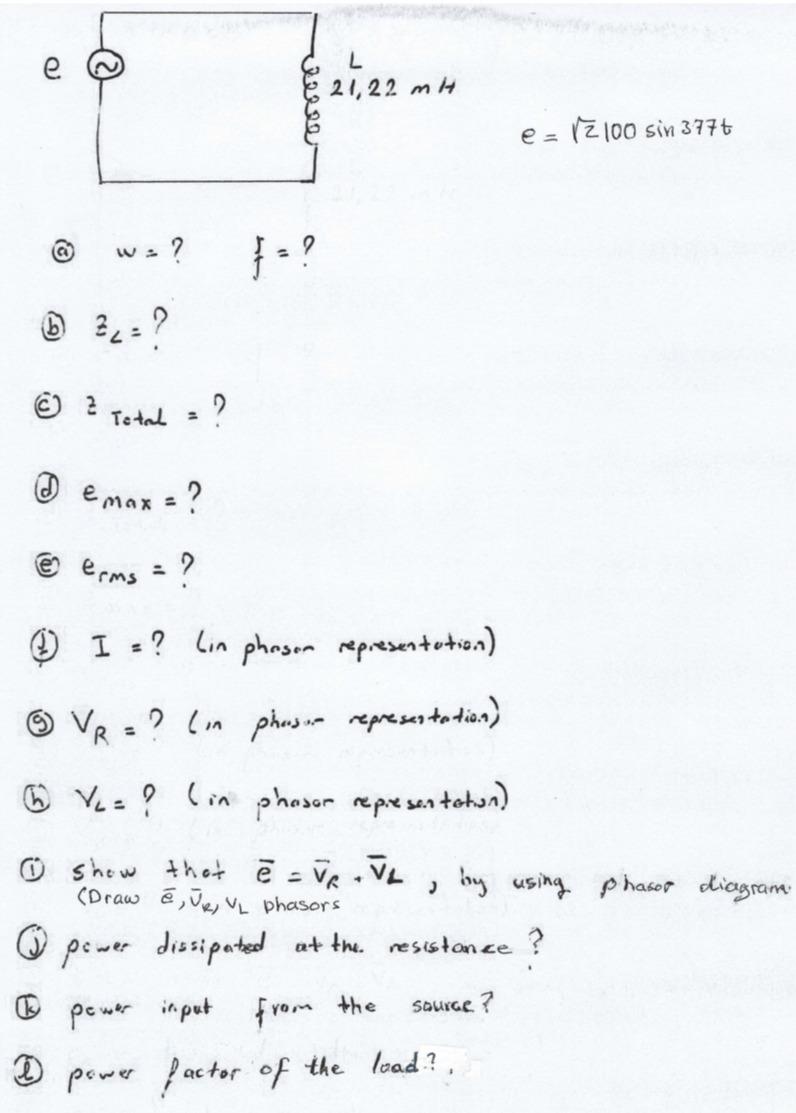 e
L
21,22 mH
e = √2 100 sin 377t
ⓐ w = ? f = ?
ⓑ Z_L = ?
ⓒ Z_Total = ?
ⓓ e_max = ?
ⓔ e_rms = ?
ⓕ I = ? (in phasor representation)
ⓖ V_R = ? (in phasor representation)
ⓗ V_L = ? (in phasor representation)
ⓘ show that e̅ = V̅_R + V̅_L, by using phasor diagram
(Draw e̅, V̅_R, V_L phasors
ⓙ power dissipated at the resistance?
ⓚ power input from the source?
ⓛ power factor of the load?.